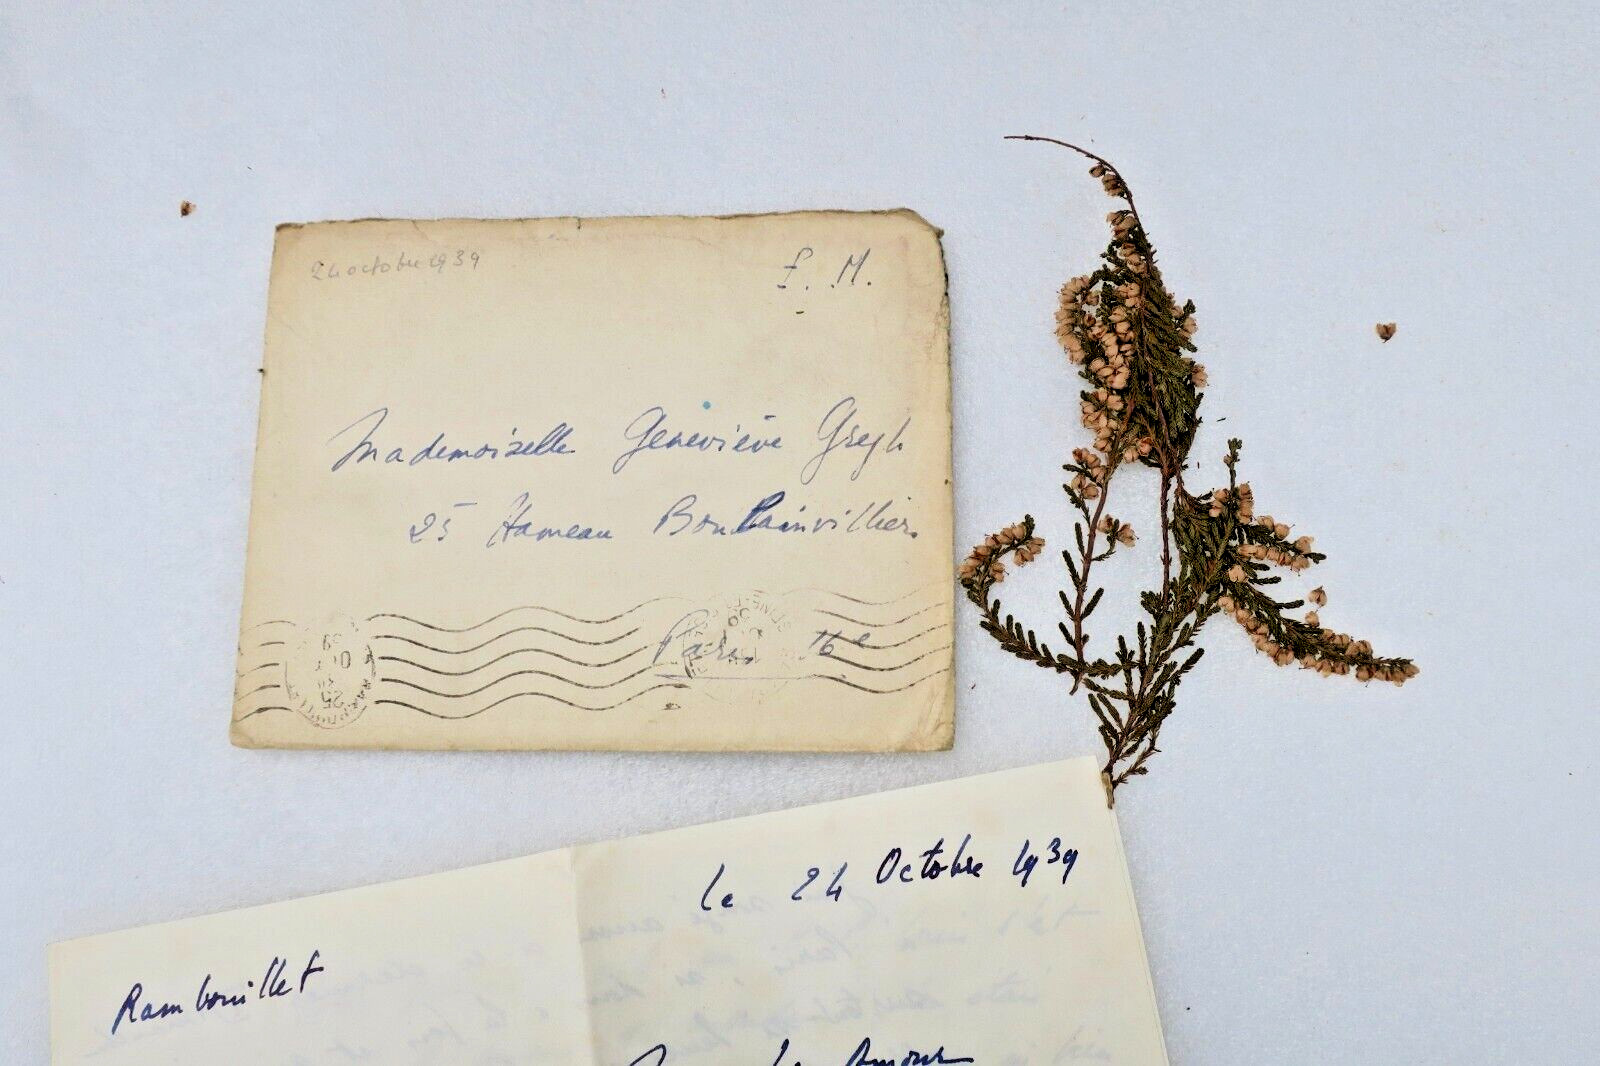 24 octobre 1939
F. M.
Mademoiselle Geneviève Gregh
25 Hameau Boulainvilliers
Paris 16e
25
le 24 Octobre 1939
Rambouillet
Amour